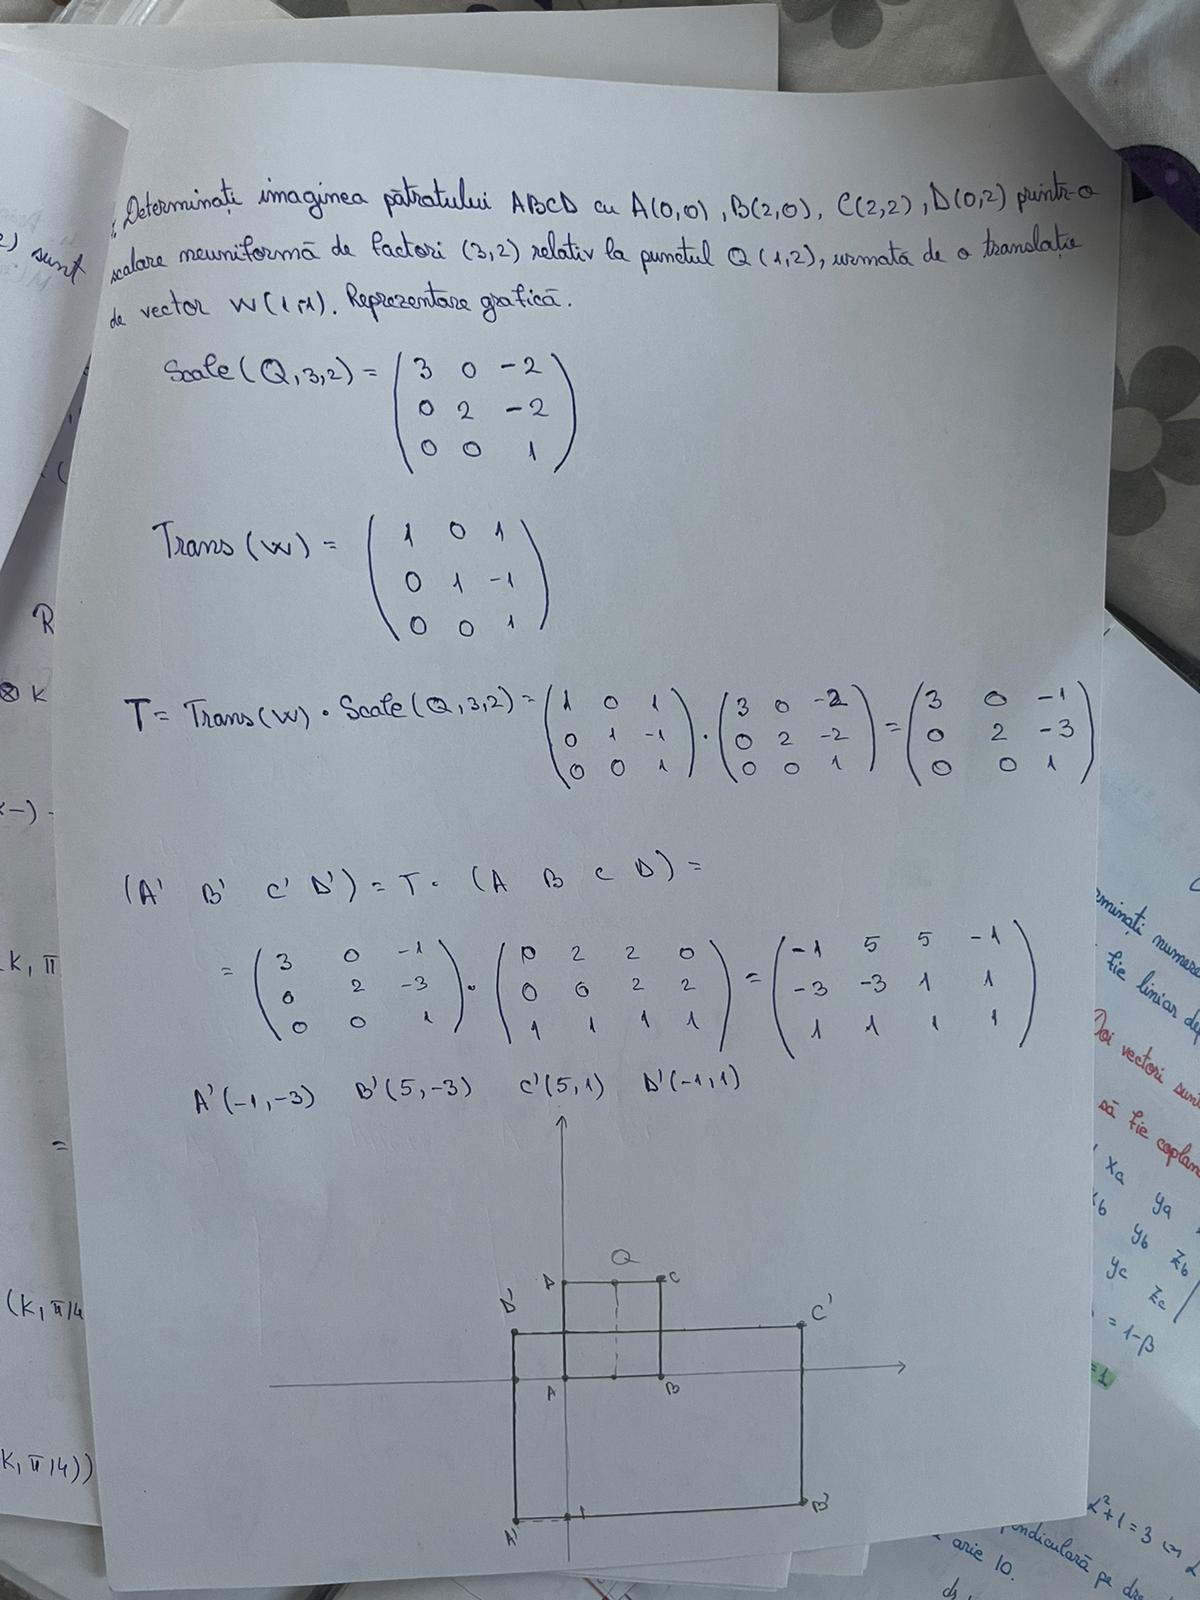 Determinați imaginea pătratului ABCD cu A(0,0), B(2,0), C(2,2), D(0,2) printr-o
scalare neuniformă de factori (3,2) relativ la punctul Q(1,2), urmată de o translație
de vector w(1,-1). Reprezentare grafică.
Scale(Q,3,2) = ( 3 0 -2
0 2 -2
0 0 1 )
Trans(w) = ( 1 0 1
0 1 -1
0 0 1 )
T = Trans(w) · Scale(Q,3,2) = ( 1 0 1 ) · ( 3 0 -2 ) = ( 3 0 -1 )
0 1 -1 0 2 -2 0 2 -3
0 0 1 0 0 1 0 0 1
(A' B' C' D') = T · (A B C D) =
= ( 3 0 -1 ) · ( 0 2 2 0 ) = ( -1 5 5 -1 )
0 2 -3 0 0 2 2 -3 -3 1 1
0 0 1 1 1 1 1 1 1 1 1
A'(-1,-3) B'(5,-3) C'(5,1) D'(-1,1)
Q
D C
D' C'
A B
A' B'
sunt
R
⊗ K
K, π
=
(K, π/4
K, π/4))
minați numere
fie liniar dep
Doi vectori sunt
să fie coplan
xa ya
xb yb zb
yc zc
= 1-β
=1
α²+1=3
pe
arie 10.